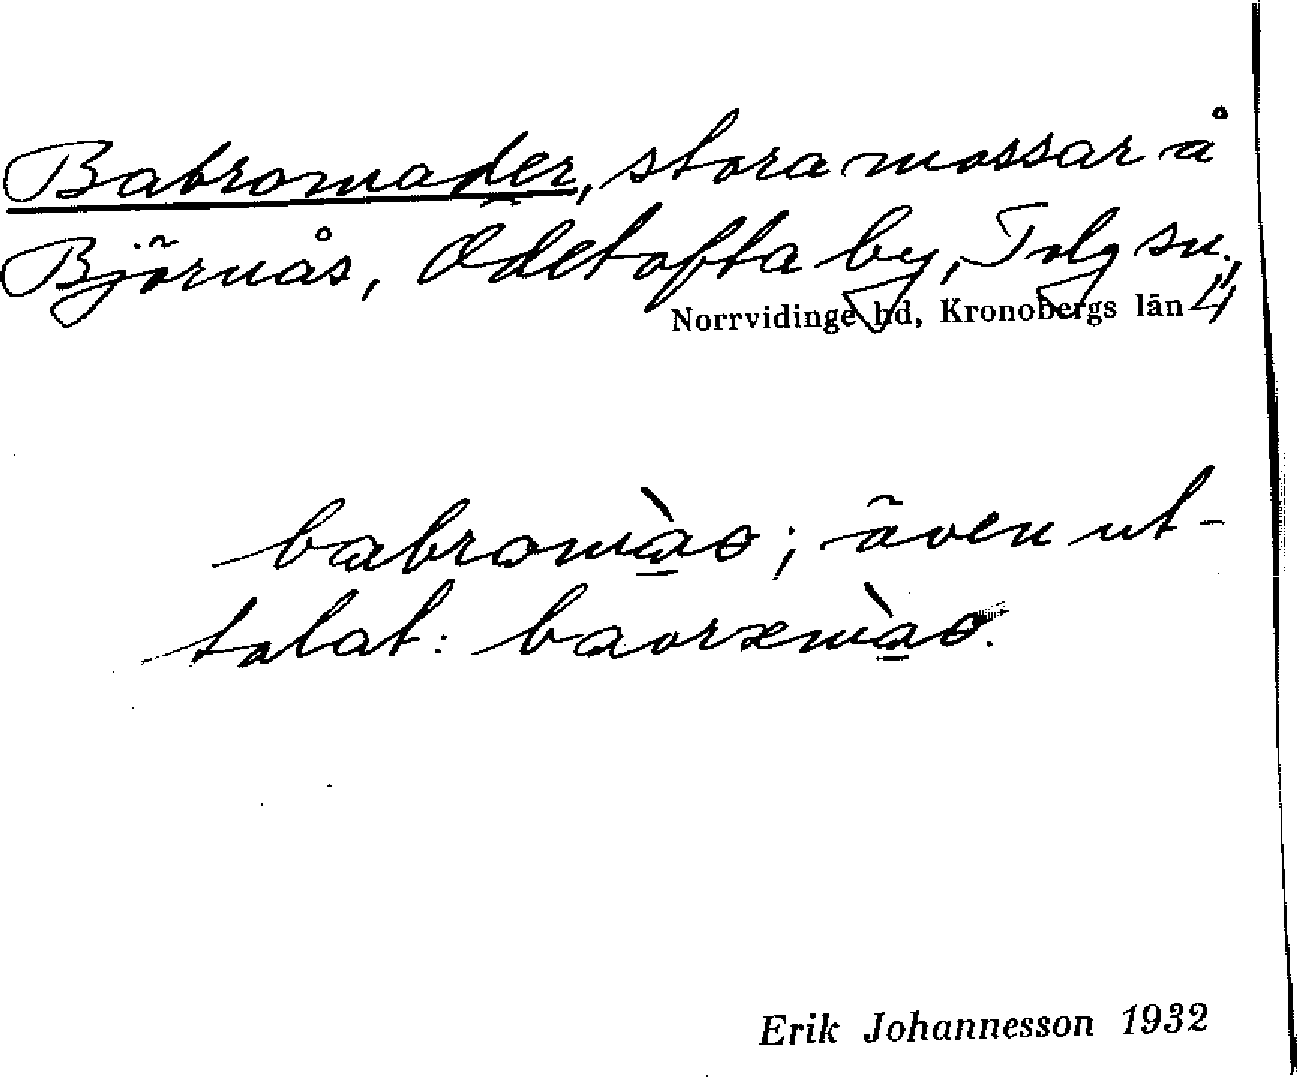 Babromader, stora mossar å
Björnås, Ödetofta by, Tolg sn.,
Norrvidinge hd, Kronobergs län 4
babromàs; även ut-
talat: baorəmàs.
Erik Johannesson 1932